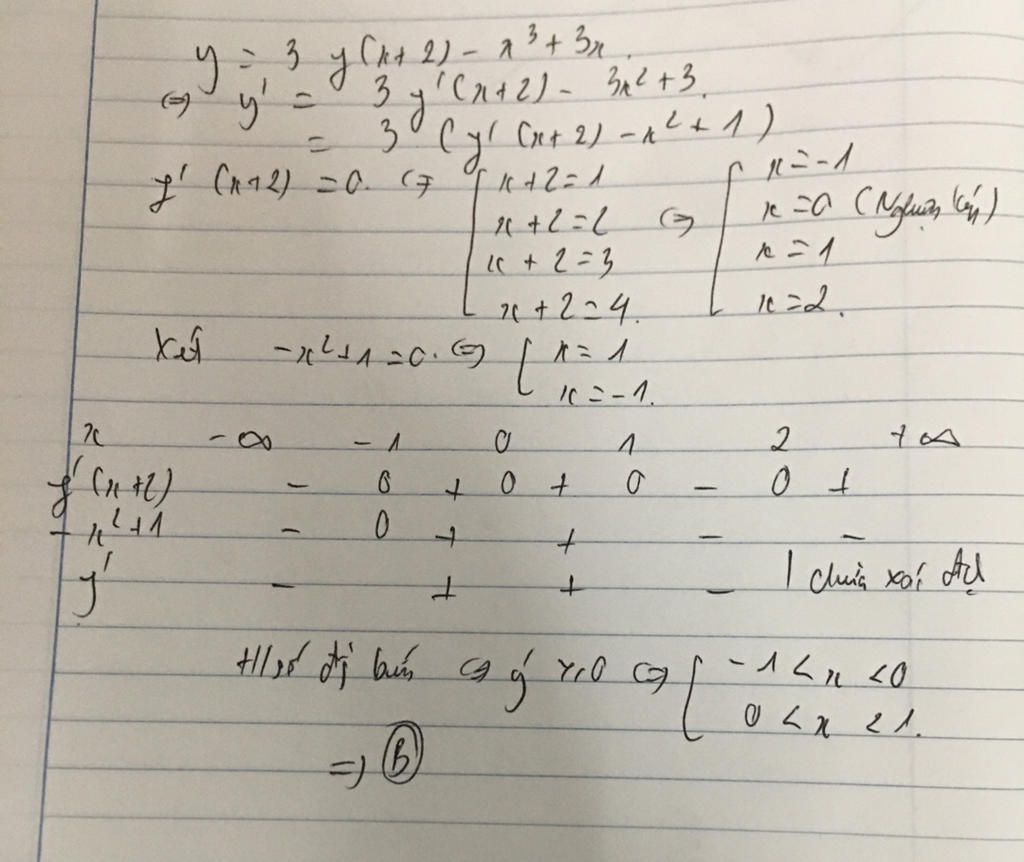 y = 3 y(x+2) - x³ + 3x.
⇔ y' = 3 y'(x+2) - 3x² + 3.
= 3 (y'(x+2) - x² + 1)
y' (x+2) = 0. ⇔ [ x+2=1 [ x=-1
x+2=2 ⇔ x=0 (Nghiệm kép)
x+2=3 x=1
x+2=4. x=2.
Xét -x²+1=0. ⇔ [ x=1
x=-1.
x -∞ -1 0 1 2 +∞
y'(x+2) - 0 + 0 + 0 - 0 +
-x²+1 - 0 + + - -
y' - + + - | chưa xác đị
H/số đị biến ⇔ y' > 0 ⇔ [ -1 < x < 0
0 < x < 1.
=> B